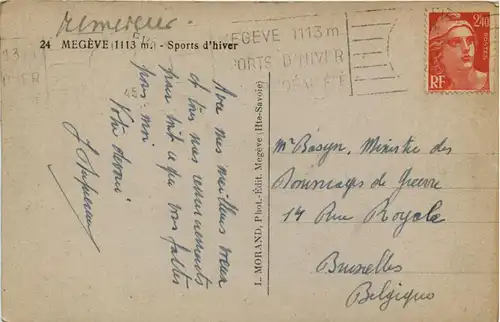 remercier
24 MEGÈVE (1113 m.) - Sports d'hiver
MEGEVE 1113 m
SPORTS D'HIVER
2F40
POSTES
RF
Avec mes meilleurs vœux
et tous mes remerciements
pour tout ce que vous faites
pour moi
Votre dévoué
I. MORAND, Phot.-Edit. Megève (Hte-Savoie)
Mr Basyn, Ministre des
Dommages de Guerre
14 Rue Royale
Bruxelles
Belgique